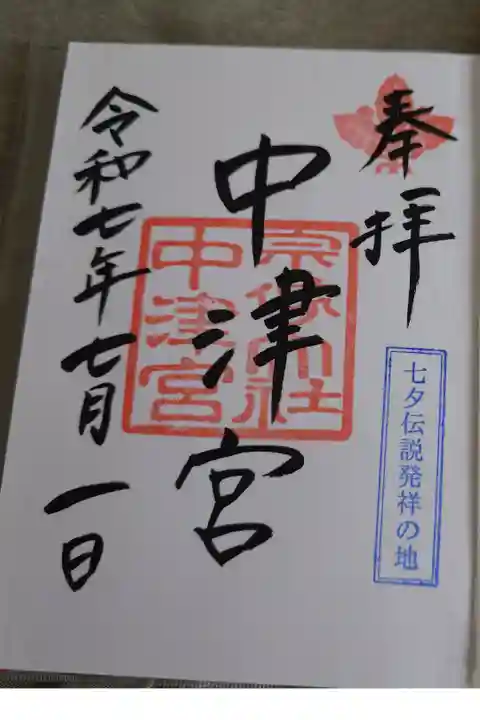 奉拝
七夕伝説発祥の地
中津宮
宗像大社
中津宮
令和七年七月一日